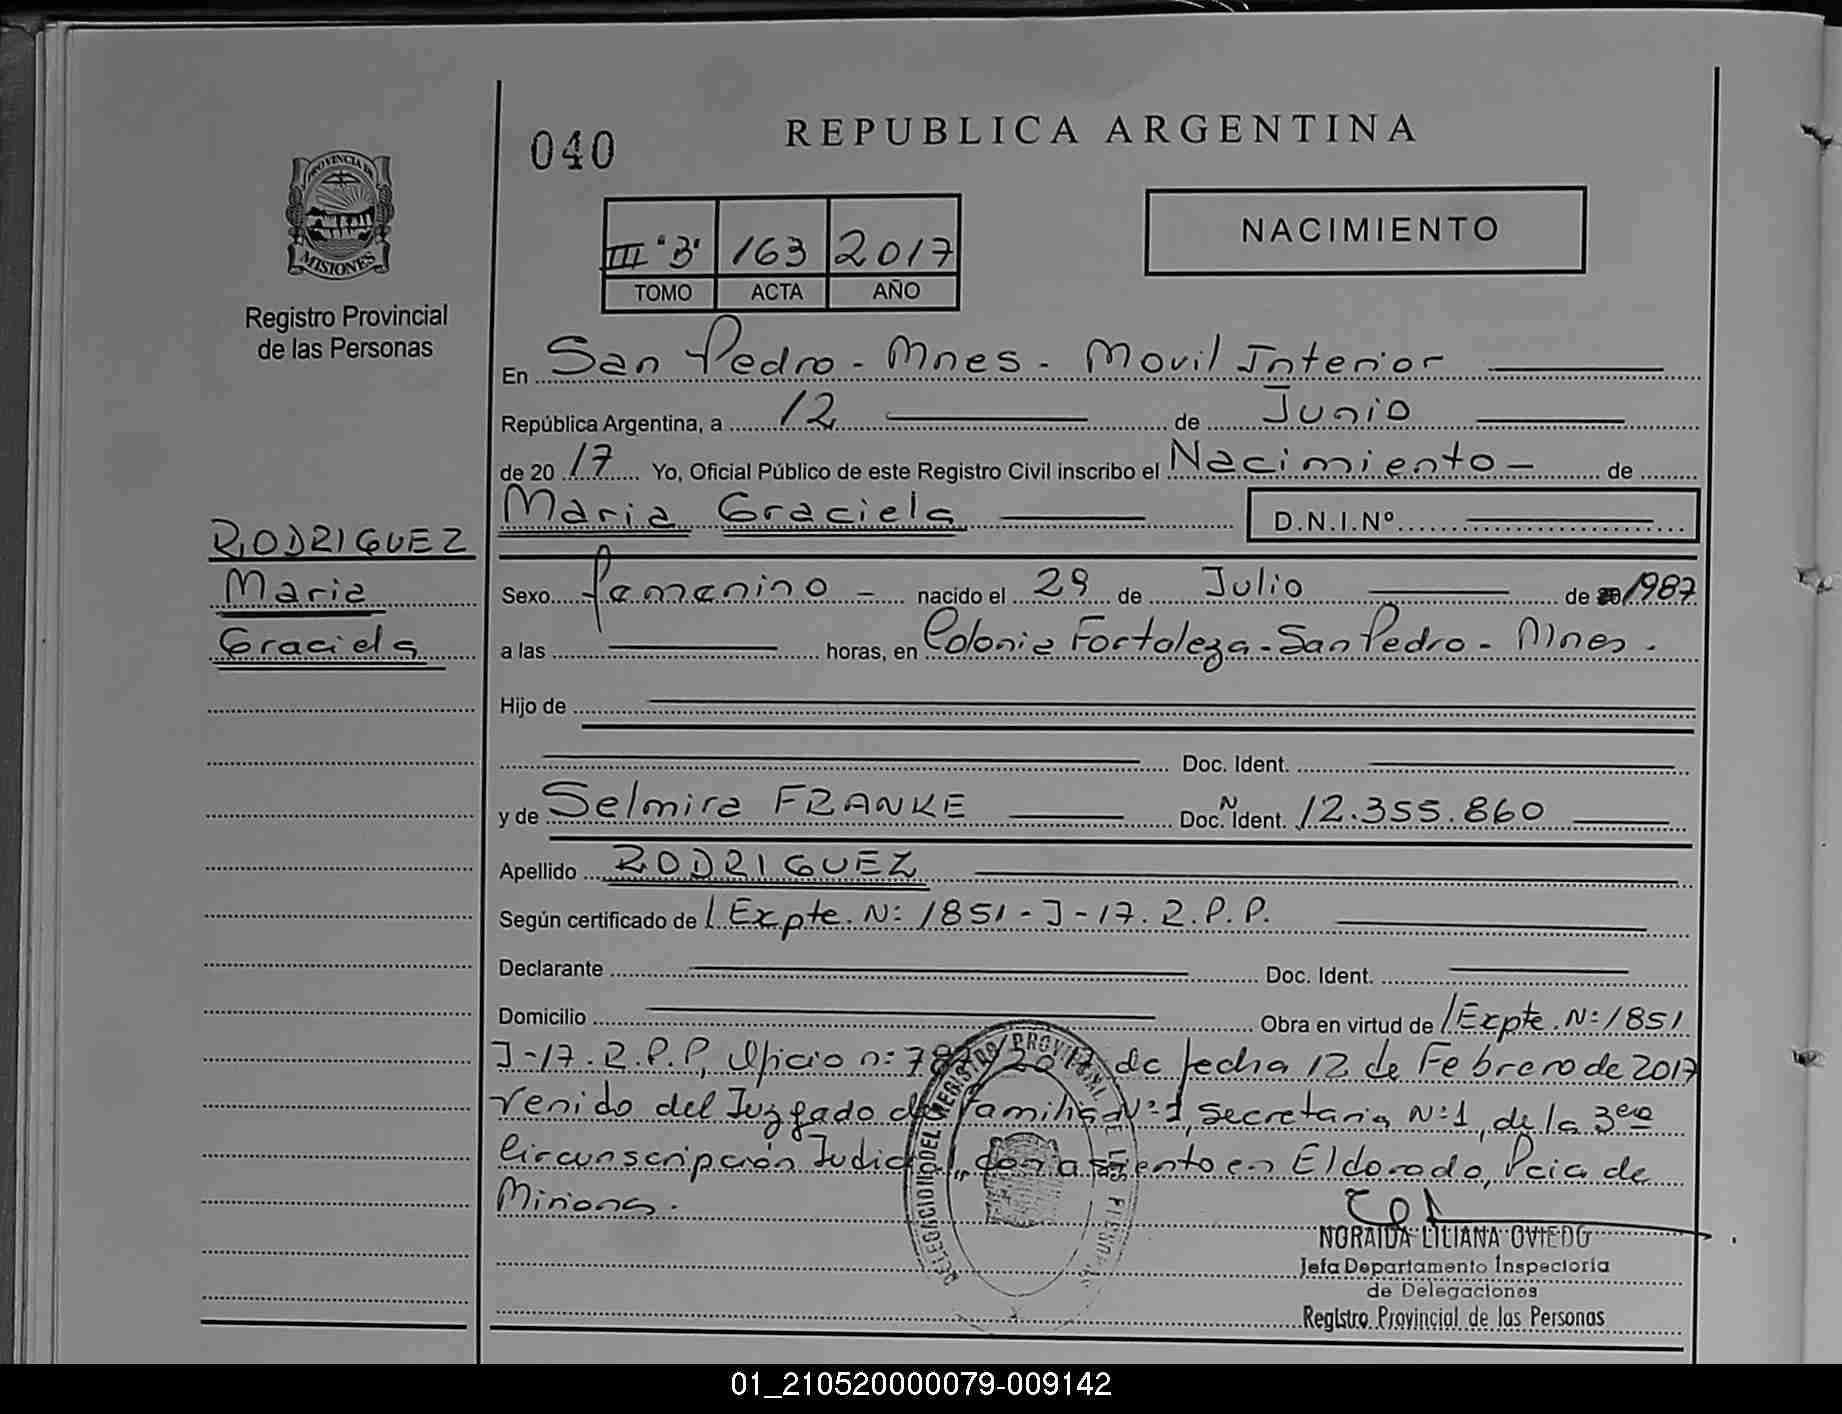 040
REPUBLICA ARGENTINA
PROVINCIA DE
MISIONES
Registro Provincial
de las Personas
NACIMIENTO
III "B" 163 2017
TOMO ACTA AÑO
En San Pedro - Mnes - Movil Interior
República Argentina, a 12 de Junio
de 20 17 Yo, Oficial Público de este Registro Civil inscribo el Nacimiento - de
Maria Graciela D.N.I.Nº
RODRIGUEZ
Maria
Graciela
Sexo femenino - nacido el 29 de Julio de 1987
a las horas, en Colonia Fortaleza - San Pedro - Mnes.
Hijo de
Doc. Ident.
y de Selmira FRANKE Doc. Nº Ident. 12.355.860
Apellido RODRIGUEZ
Según certificado de / Expte. Nº: 1851 - J - 17. R. P. P.
Declarante Doc. Ident.
Domicilio Obra en virtud de / Expte. Nº: 1851
J - 17. R. P. P, Oficio nº: 2017 de fecha 12 de Febrero de 2017
venido del Juzgado de Familia Nº 1, Secretaria Nº 1, de la 3era
Circunscripción Judicial, con asiento en Eldorado, Pcia de
Misiones.
DELEGACION DEL REGISTRO PROVINCIAL DE LAS PERSONAS
NORAIDA LILIANA OVIEDO
Jefa Departamento Inspectoria
de Delegaciones
Registro Provincial de las Personas
01_210520000079-009142